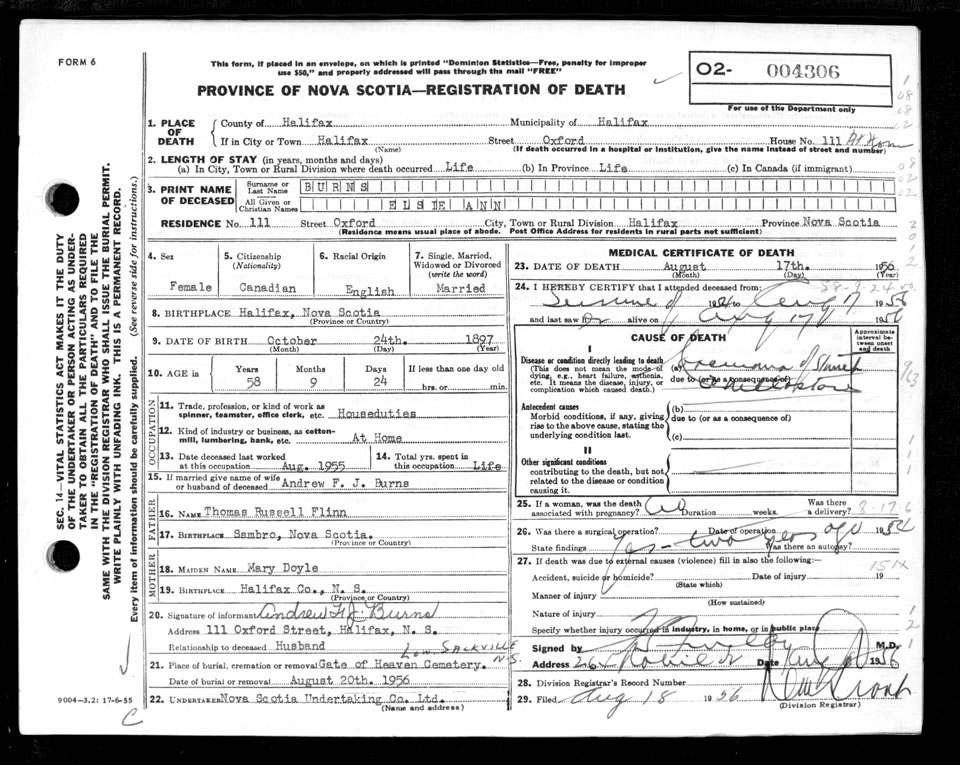 FORM 6
This form, if placed in an envelope, on which is printed "Dominion Statistics—Free, penalty for improper
use $50," and properly addressed will pass through the mail "FREE"
02- 004306
For use of the Department only
PROVINCE OF NOVA SCOTIA—REGISTRATION OF DEATH
1. PLACE OF DEATH
County of Halifax Municipality of Halifax
If in City or Town Halifax Street Oxford House No. 111 At Home
(Name) (If death occurred in a hospital or institution, give the name instead of street and number)
2. LENGTH OF STAY (in years, months and days)
(a) In City, Town or Rural Division where death occurred Life (b) In Province Life (c) In Canada (if immigrant)
3. PRINT NAME OF DECEASED
Surname or Last Name BURNS
All Given or Christian Names ELSIE ANN
RESIDENCE No. 111 Street Oxford City, Town or Rural Division Halifax Province Nova Scotia
(Residence means usual place of abode. Post Office Address for residents in rural parts not sufficient)
4. Sex
Female
5. Citizenship (Nationality)
Canadian
6. Racial Origin
English
7. Single, Married, Widowed or Divorced (write the word)
Married
8. BIRTHPLACE Halifax, Nova Scotia
(Province or Country)
9. DATE OF BIRTH October 24th. 1897
(Month) (Day) (Year)
10. AGE in Years Months Days If less than one day old
58 9 24 hrs. or min.
OCCUPATION
11. Trade, profession, or kind of work as
spinner, teamster, office clerk, etc. Houseduties
12. Kind of industry or business, as cotton-
mill, lumbering, bank, etc. At Home
13. Date deceased last worked
at this occupation Aug. 1955
14. Total yrs. spent in
this occupation Life
15. If married give name of wife
or husband of deceased Andrew F. J. Burns
FATHER
16. NAME Thomas Russell Flinn
17. BIRTHPLACE Sambro, Nova Scotia.
(Province or Country)
MOTHER
18. MAIDEN NAME Mary Doyle
19. BIRTHPLACE Halifax Co., N. S.
(Province or Country)
20. Signature of informant Andrew F. J. Burns
Address 111 Oxford Street, Halifax, N. S.
Relationship to deceased Husband
Low. SACKVILLE N.S.
21. Place of burial, cremation or removal Gate of Heaven Cemetery.
Date of burial or removal August 20th. 1956
22. UNDERTAKER Nova Scotia Undertaking Co. Ltd.
(Name and address)
MEDICAL CERTIFICATE OF DEATH
23. DATE OF DEATH August 17th. 1956
(Month) (Day) (Year)
58-9-24
24. I HEREBY CERTIFY that I attended deceased from:
Aug 17 1956
and last saw alive on Aug 17 1956
CAUSE OF DEATH
Approximate interval between onset and death
I
Disease or condition directly leading to death
(This does not mean the mode of
dying, e.g., heart failure, asthenia,
etc. It means the disease, injury, or
complication which caused death.)
(a) Carcinoma of Stomach
due to (or as a consequence of)
Antecedent causes
Morbid conditions, if any, giving
rise to the above cause, stating the
underlying condition last.
(b)
due to (or as a consequence of)
(c)
II
Other significant conditions
contributing to the death, but not
related to the disease or condition
causing it.
25. If a woman, was the death
associated with pregnancy? No Duration weeks. Was there a delivery?
8-17-6
26. Was there a surgical operation? Date of operation 19
State findings Yes - two years ago Was there an autopsy?
27. If death was due to external causes (violence) fill in also the following:
151X
Accident, suicide or homicide? Date of injury 19
(State which)
Manner of injury
(How sustained)
Nature of injury
Specify whether injury occurred in industry, in home, or in public place
Signed by M.D.
Address Date Aug 1956
28. Division Registrar's Record Number
29. Filed Aug 18 1956
(Division Registrar)
SEC. 14—VITAL STATISTICS ACT MAKES IT THE DUTY
OF THE UNDERTAKER OR PERSON ACTING AS UNDER-
TAKER TO OBTAIN ALL THE PARTICULARS REQUIRED
IN THE "REGISTRATION OF DEATH" AND TO FILE THE
SAME WITH THE DIVISION REGISTRAR WHO SHALL ISSUE THE BURIAL PERMIT.
WRITE PLAINLY WITH UNFADING INK. THIS IS A PERMANENT RECORD.
Every item of information should be carefully supplied. (See reverse side for instructions.)
9004—3.2: 17-6-55
C